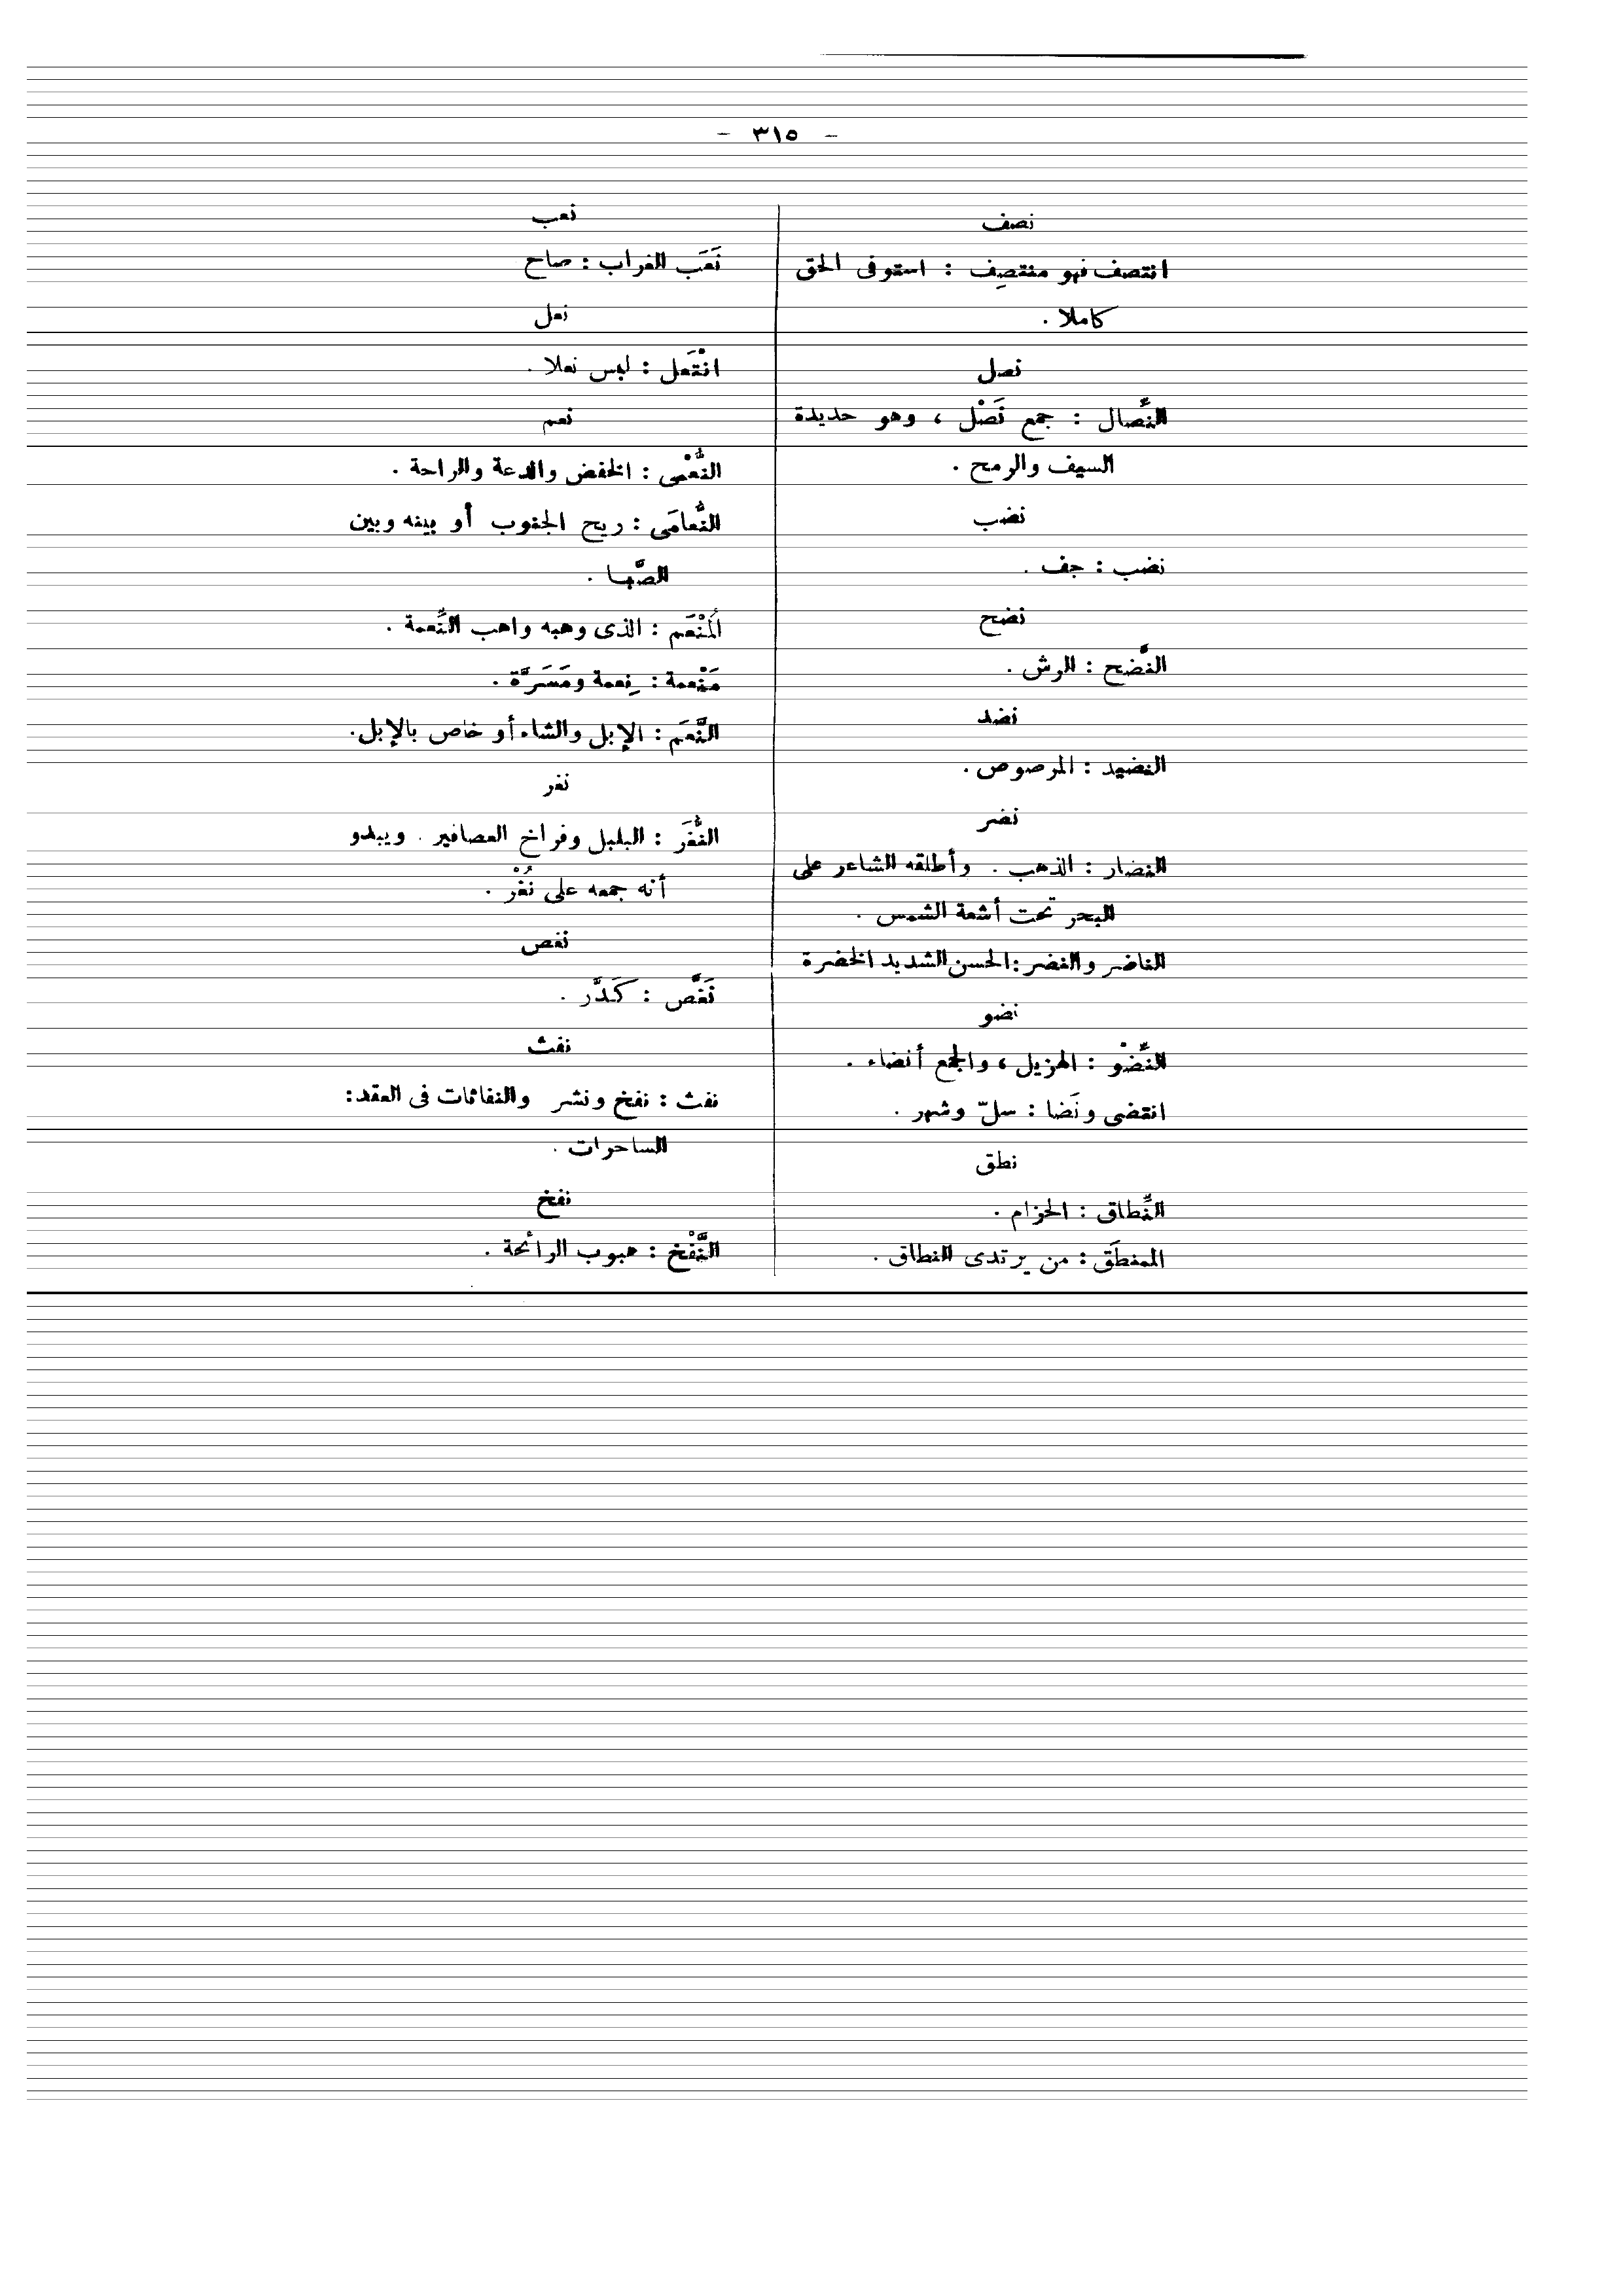 - ٣١٥ -
نصف
انتصف فهو منتصِف : استوفى الحق
كاملا .
نصل
النِّصال : جمع نَصْل ، وهو حديدة
السيف والرمح .
نضب
نضب : جف .
نضح
النَّضح : الرش .
نضد
النضيد : المرصوص .
نضر
النضار : الذهب . وأطلقه الشاعر على
البحر تحت أشعة الشمس .
الناضر والنضر : الحسن الشديد الخضرة
نضو
النِّضْو : الهزيل ، والجمع أنضاء .
انتضى ونَضا : سلّ وشهر .
نطق
النِّطاق : الحزام .
المنطَق : من يرتدى النطاق .
نعب
نَعَب الغراب : صاح
نعل
انْتَعل : لبس نعلا .
نعم
النُّعْمى : الخفض والدعة والراحة .
النُّعامَى : ريح الجنوب أو بينه وبين
الصَّبا .
المُنْعَم : الذى وهبه واهب النِّعمة .
مَنْعمة : نِعمة ومَسَرَّة .
النَّعَم : الإبل والشاء أو خاص بالإبل.
نغر
النُّغَر : البلبل وفراخ العصافير . ويبدو
أنه جمعه على نُغْر .
نغص
نَغَّص : كَدَّر .
نفث
نفث : نفخ ونشر والنفاثات فى العقد:
الساحرات .
نفخ
النَّفْخ : هبوب الرائحة .